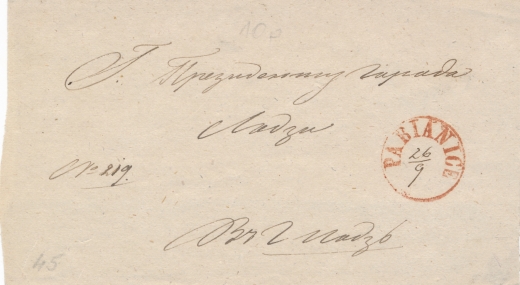 100
Г. Президенту города
Лодзи
PABIANICE
26/9
№ 219
Въ Г Лодзь
45